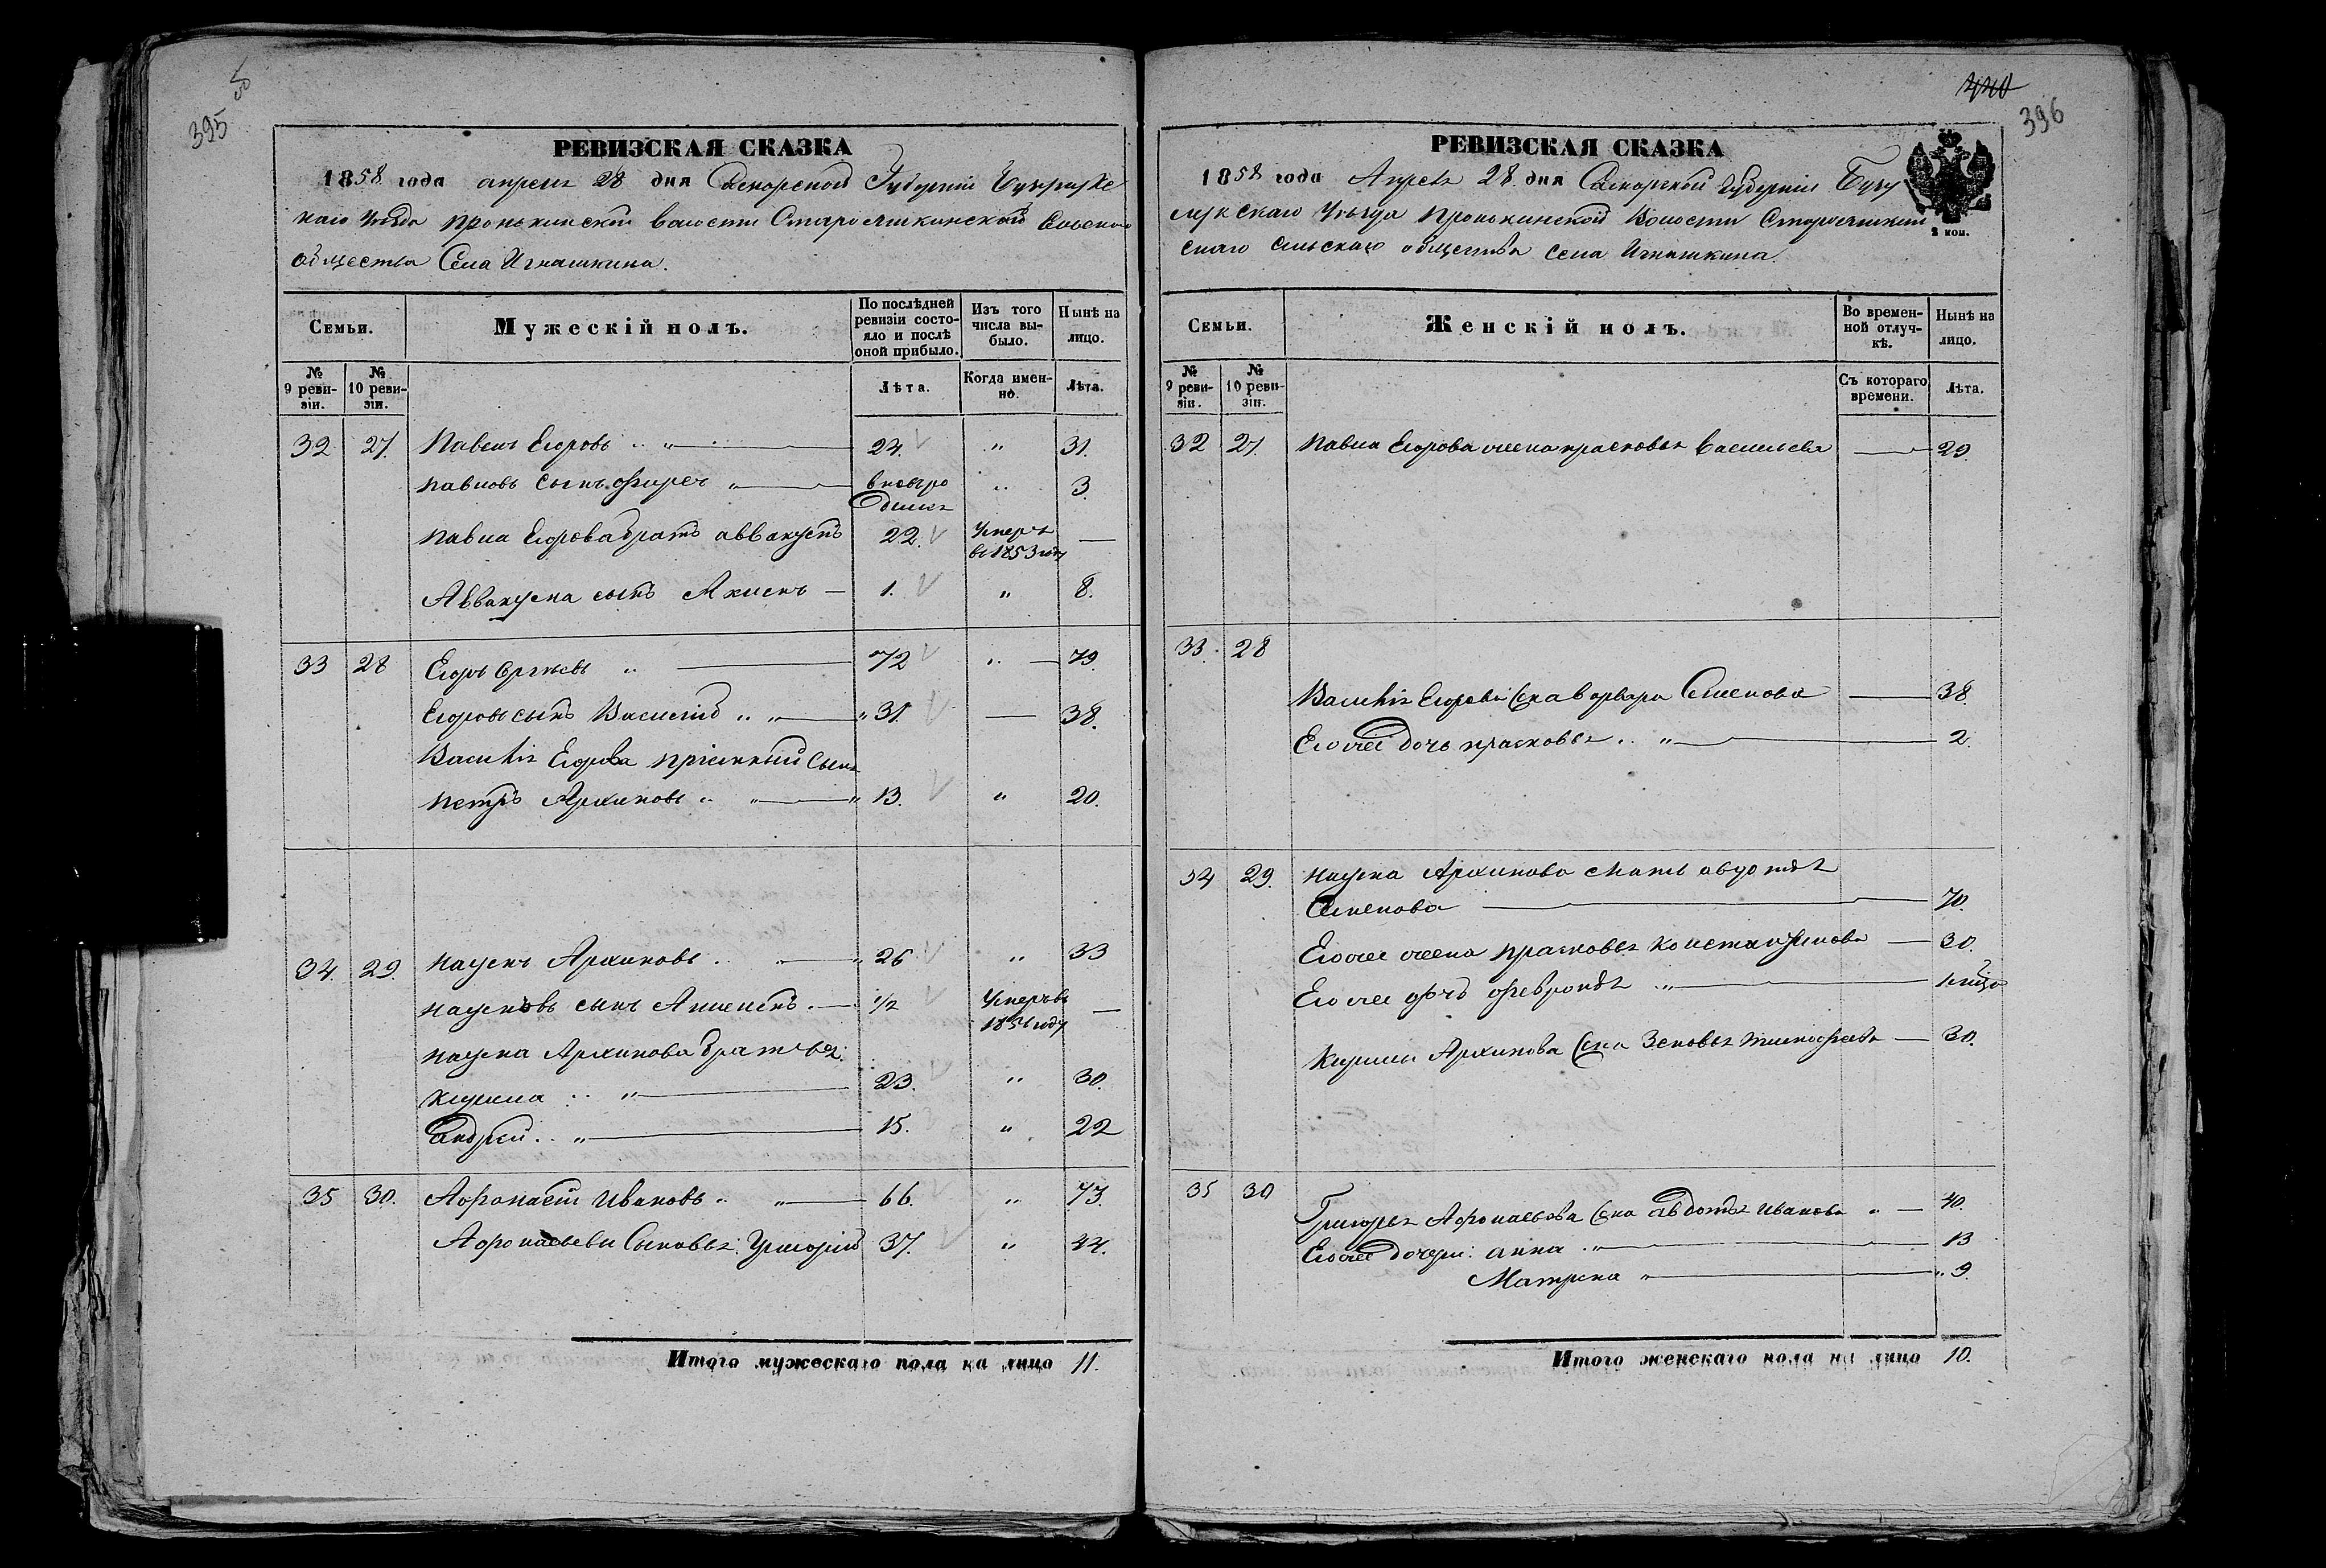 395
РЕВИЗСКАЯ СКАЗКА
1858 года апреля 28 дня Самарской Губерніи Бузулукс
каго Уѣзда пронькинской валости Старояшкинскаго Сельскаго
общества Села Игнашкина.
Семьи.
Мужескій полъ.
По послѣдней ревизіи состояло и послѣ оной прибыло.
Изъ того числа выбыло.
Нынѣ на лицо.
№ 9 ревизіи.
№ 10 ревизіи.
Лѣта.
Когда именно.
Лѣта.
32 27. Павелъ Егоровъ 24. " 31.
павловъ сынъ вновьро " 3.
дился
павла Егорова братъ аввакумъ 22. Умеръ —
въ 1853 году
Аввакума сынъ Якимъ 1. " 8.
33 28 Егоръ Сргѣевъ " 72 " 79.
Егоровъ сынъ Василій " 31. — 38.
Василія Егорова пріемный сынъ
петръ Архиповъ " 13. " 20.
34. 29. наумъ Архиповъ. " 26 " 33
наумовъ сынъ 1/2 Умеръ въ —
году
наума Архипова братья:
23. " 30.
андрей " 15. " 22
35 30. Афонасій Ивановъ " 66. " 73.
Афонасьевы Сыновья: Григорій 37. " 44.
Итого мужескаго пола на лицо 11.
440
396
РЕВИЗСКАЯ СКАЗКА
1858 года Апреля 28 дня Самарской губерніи Бузу
лукскаго Уѣзда пронькинской Волости Старояшкин
скаго сельскаго общества села Игнашкина.
3 коп.
Семьи.
Женскій полъ.
Во временной отлучкѣ.
Нынѣ на лицо.
№ 9 ревизіи.
№ 10 ревизіи.
Съ котораго времени.
Лѣта.
32 27. павла Егорова жена прасковья Васильева 29
33. 28
Василія Егорова жена варвара Семенова 38.
Егожъ дочь прасковья 2.
34 29. наума Архипова мать авдотья
Семенова 70.
Егоже жена прасковья Константинова 30.
Егоже дочь февронья
Архипова жена Зеновья тимофеева 30.
35 30 Григорья Афонасьева жена авдотья иванова " 40.
Егоже дочери: анна " 13
Матрена " 9.
Итого женскаго пола на лицо 10.